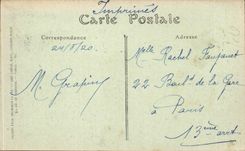 Imprimés
Carte Postale
Correspondance
24/8/20.
M. Grapin
Melle Rachel Fauquet
22 Boul. de la Gare
à Paris
13ème arrt